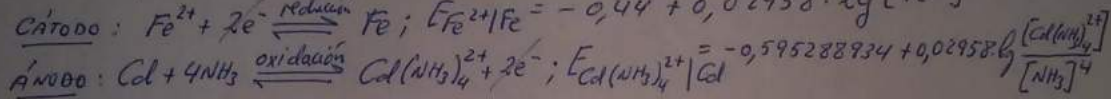 CÁTODO : Fe²⁺ + 2e⁻ ⇌ reducción Fe ; E Fe²⁺|Fe = -0,44 + 0,02958 · lg
ÁNODO : Cd + 4NH₃ ⇌ oxidación Cd(NH₃)₄²⁺ + 2e⁻ ; E Cd(NH₃)₄²⁺|Cd = -0,595288934 + 0,02958 lg [Cd(NH₃)₄²⁺] / [NH₃]⁴